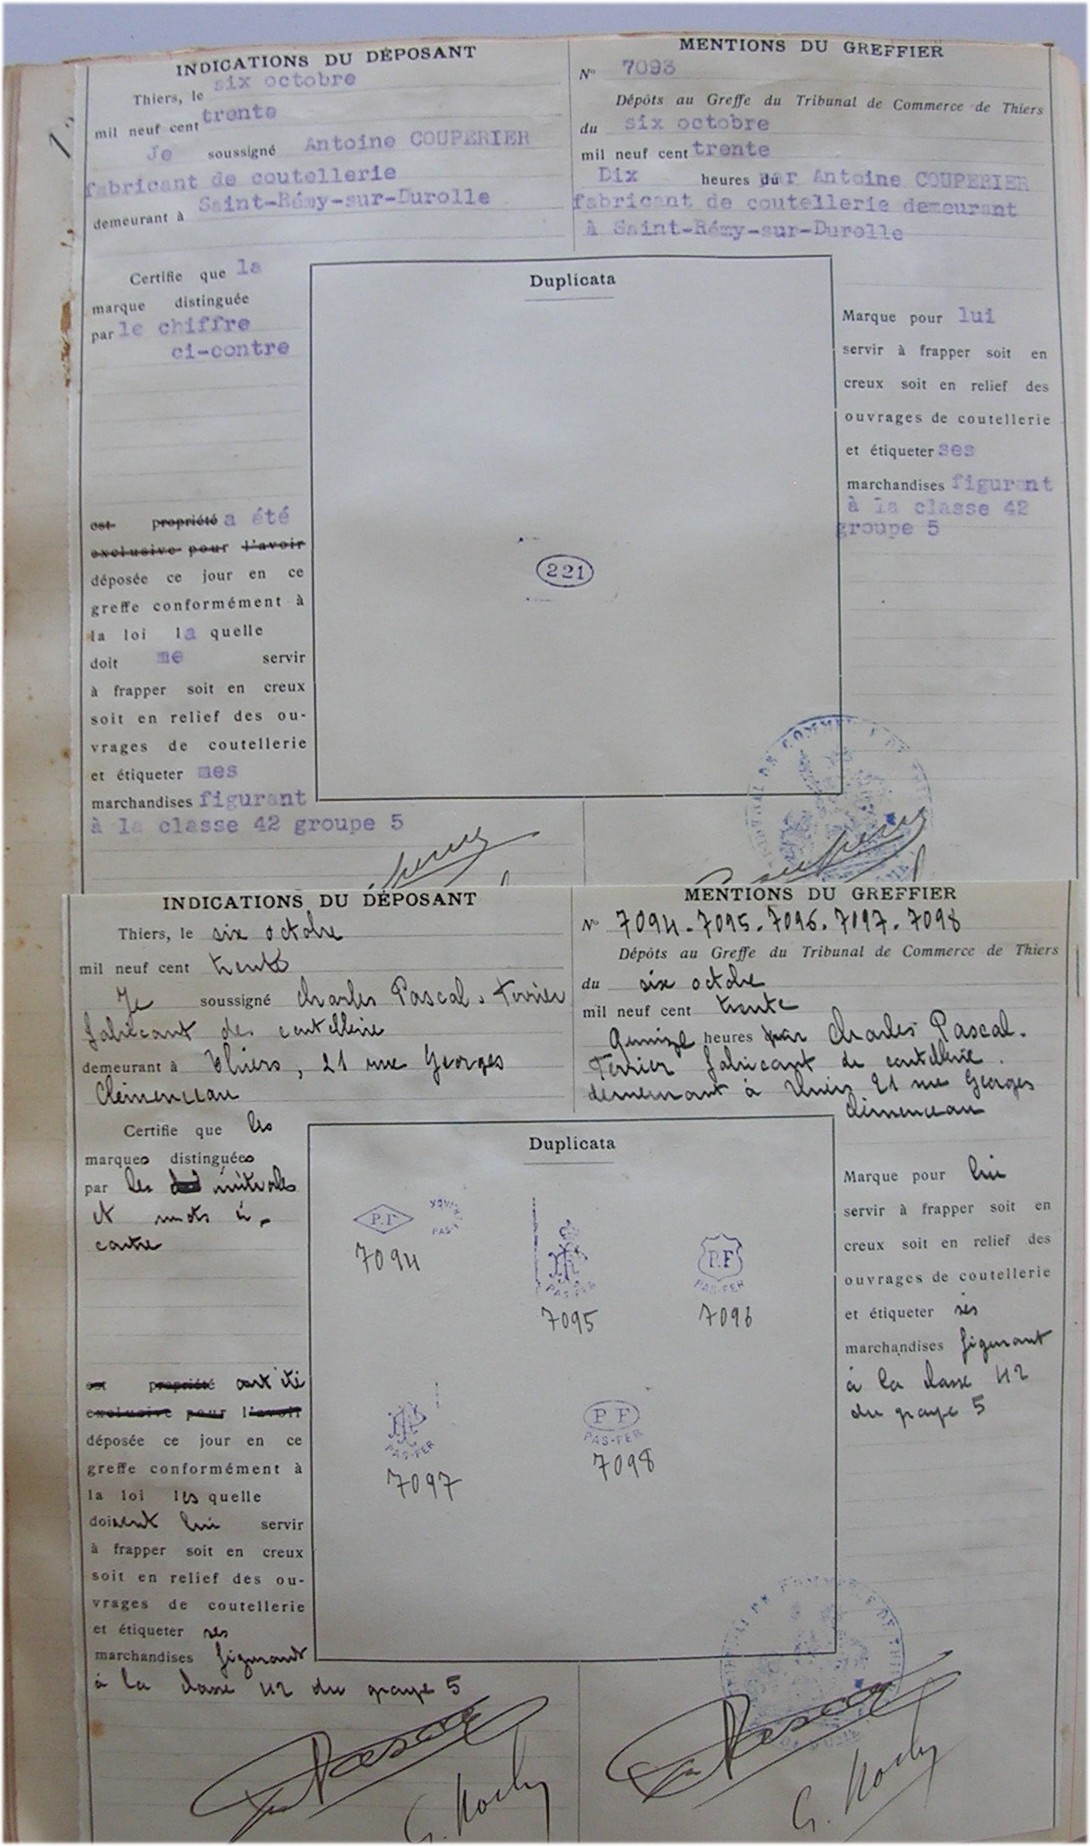 INDICATIONS DU DÉPOSANT
Thiers, le six octobre
mil neuf cent trente
Je soussigné Antoine COUPERIER
fabricant de coutellerie
demeurant à Saint-Rémy-sur-Durolle
MENTIONS DU GREFFIER
N° 7093
Dépôts au Greffe du Tribunal de Commerce de Thiers
du six octobre
mil neuf cent trente
Dix heures par Antoine COUPERIER
fabricant de coutellerie demeurant
à Saint-Rémy-sur-Durolle
Certifie que la
marque distinguée
par le chiffre
ci-contre
est propriété a été
exclusive pour l'avoir
déposée ce jour en ce
greffe conformément à
la loi la quelle
doit me servir
à frapper soit en creux
soit en relief des ou-
vrages de coutellerie
et étiqueter mes
marchandises figurant
à la classe 42 groupe 5
Duplicata
221
Marque pour lui
servir à frapper soit en
creux soit en relief des
ouvrages de coutellerie
et étiqueter ses
marchandises figurant
à la classe 42
groupe 5
INDICATIONS DU DÉPOSANT
Thiers, le six octobre
mil neuf cent trente
Je soussigné Charles Pascal-Ferrier
fabricant de coutellerie
demeurant à Thiers, 21 rue Georges
Clémenceau
MENTIONS DU GREFFIER
N° 7094-7095-7096-7097-7098
Dépôts au Greffe du Tribunal de Commerce de Thiers
du six octobre
mil neuf cent trente
Quinze heures par Charles Pascal-
Ferrier fabricant de coutellerie
demeurant à Thiers 21 rue Georges
Clémenceau
Certifie que les
marques distinguées
par les initiales
et mots ci-
contre
est propriété ont été
exclusive pour l'avoir
déposée ce jour en ce
greffe conformément à
la loi les quelle
doivent lui servir
à frapper soit en creux
soit en relief des ou-
vrages de coutellerie
et étiqueter ses
marchandises figurant
à la classe 42 du groupe 5
Duplicata
P.F
7094
PAS-FER
7095
P.F
PAS-FER
7096
PAS-FER
7097
P F
PAS-FER
7098
Marque pour lui
servir à frapper soit en
creux soit en relief des
ouvrages de coutellerie
et étiqueter ses
marchandises figurant
à la classe 42
du groupe 5